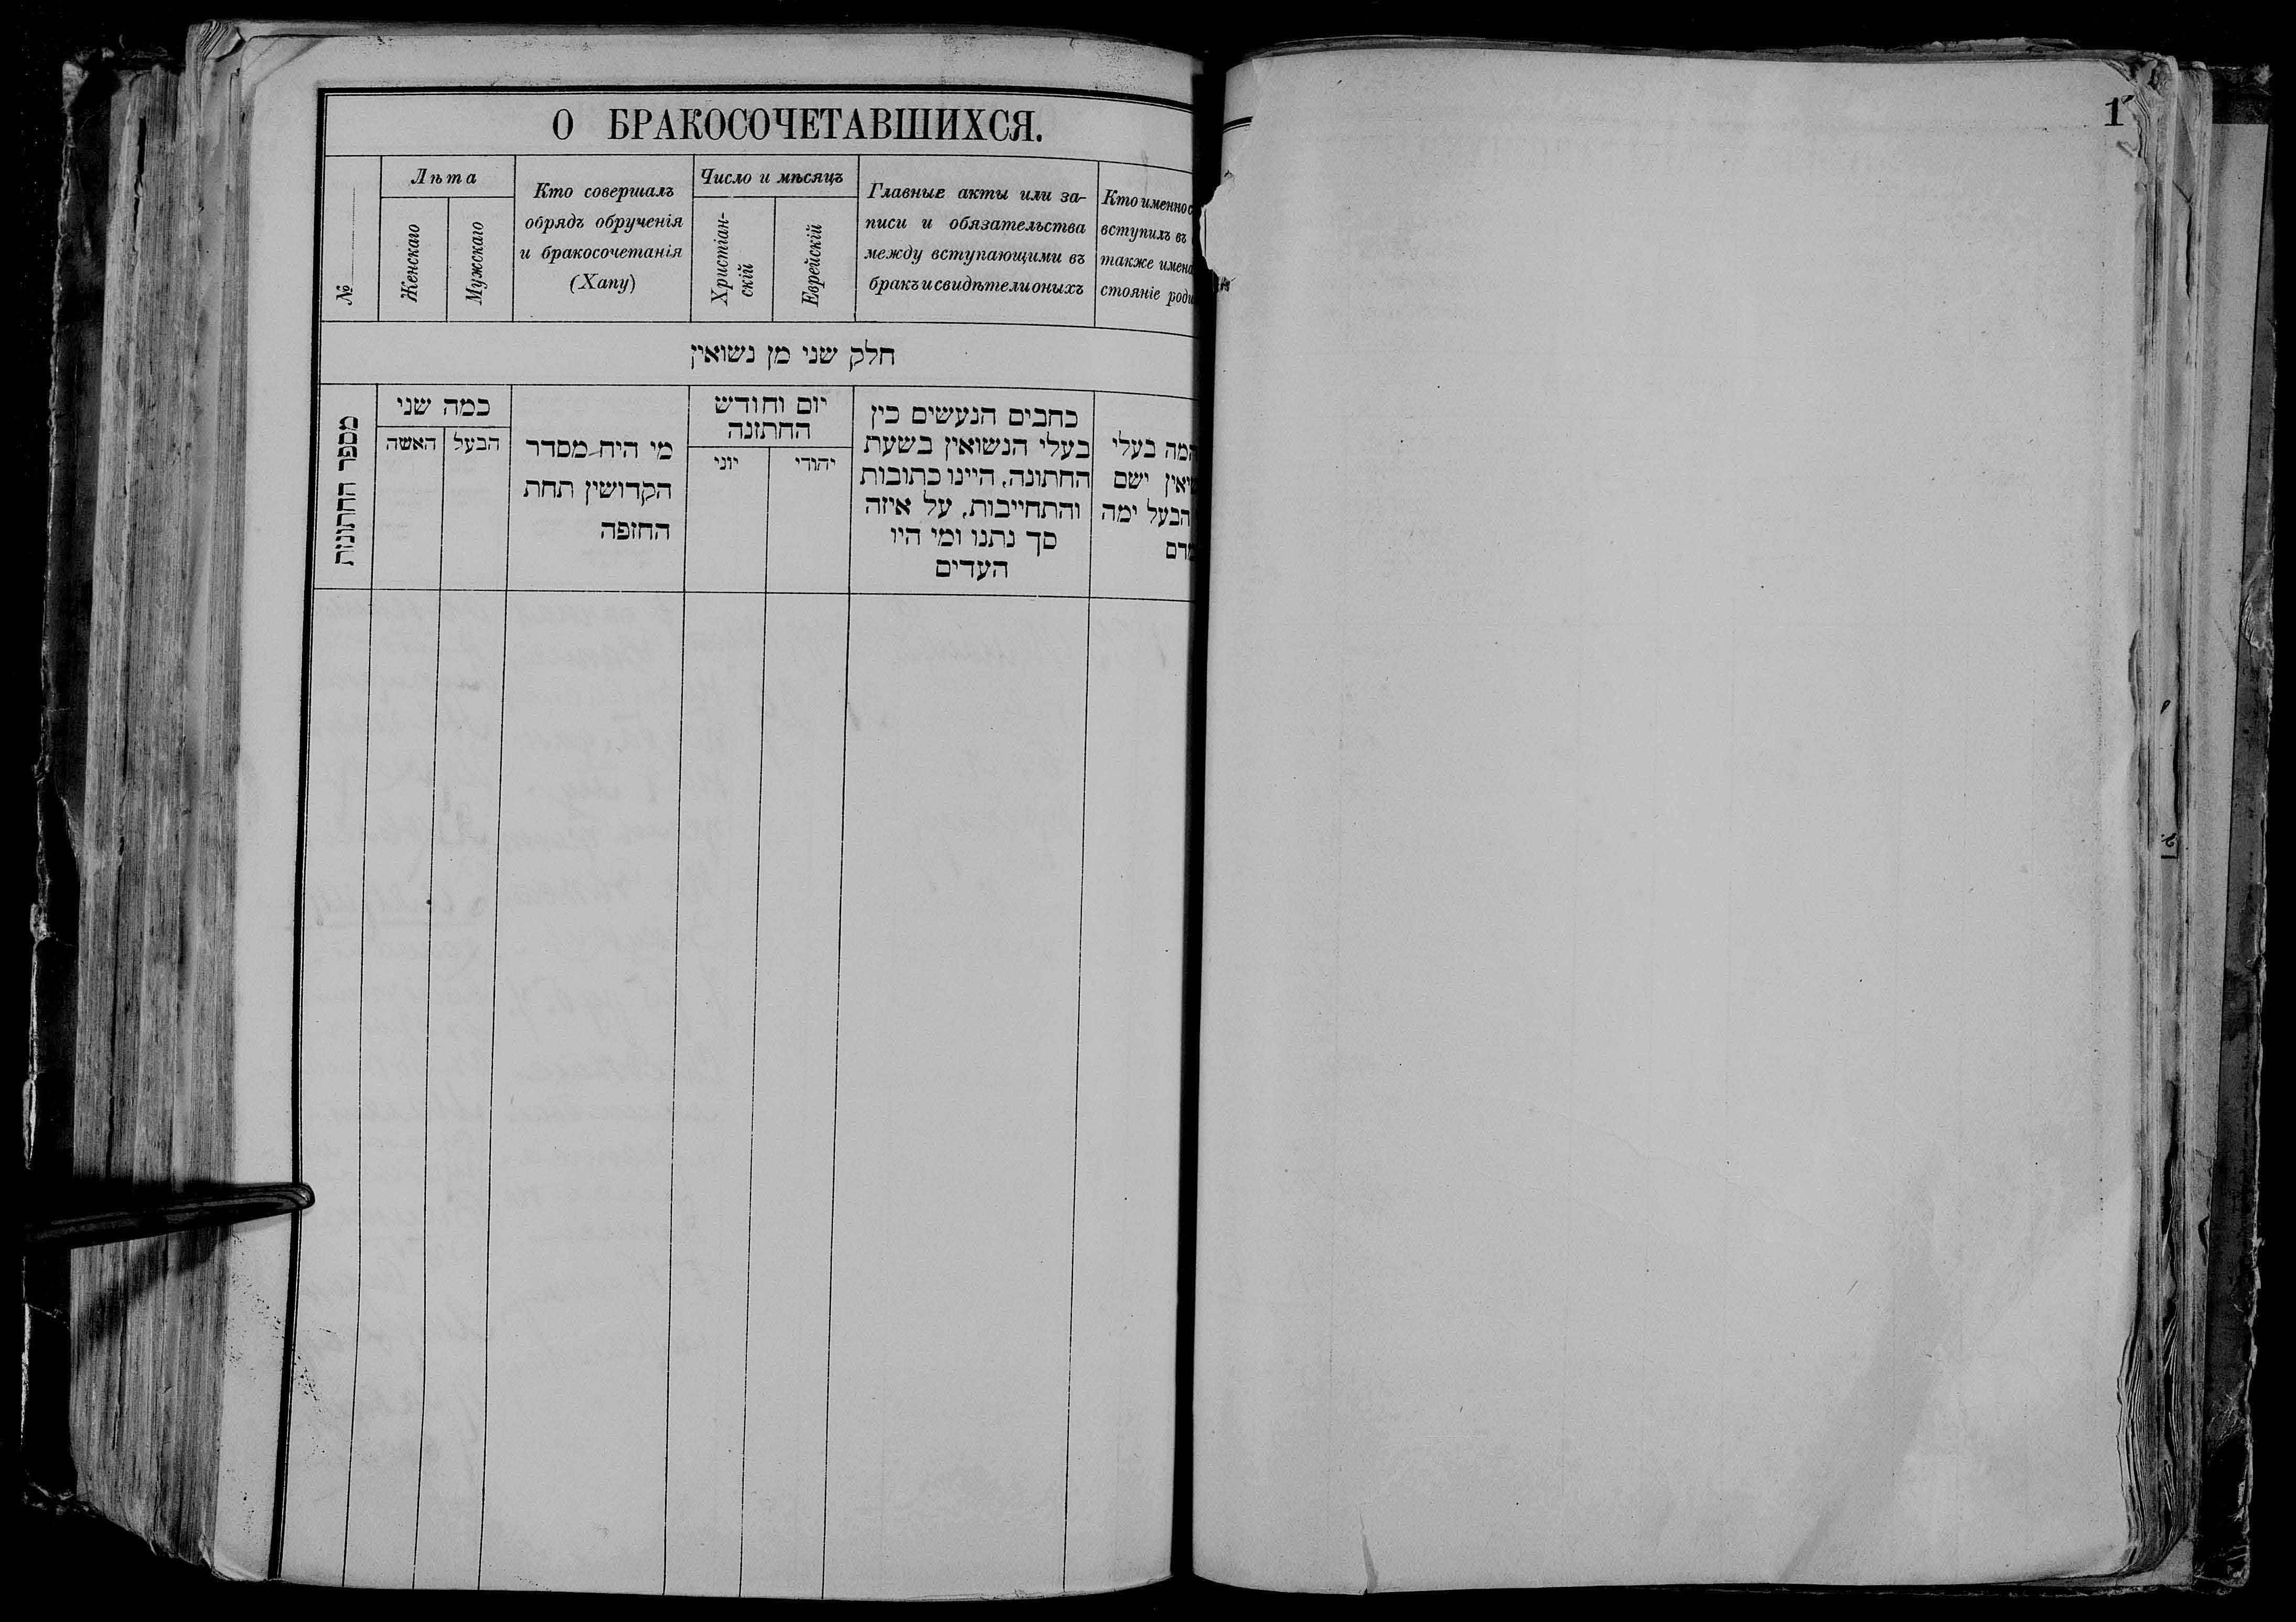 О БРАКОСОЧЕТАВШИХСЯ.
№
Лѣта
Женскаго
Мужскаго
Кто совершалъ
обрядъ обрученія
и бракосочетанія
(Хапу)
Число и мѣсяцъ
Христіан-
скій
Еврейскій
Главные акты или за-
писи и обязательства
между вступающими въ
бракъ и свидѣтели оныхъ
Кто именно
вступилъ въ
также имена
стояніе
חלק שני מן נשואין
מספר החתונות
כמה שני
האשה
הבעל
מי היח מסדר
הקדושין תחת
החזפה
יום וחודש
החתזנה
יוני
יהודי
כחבים הנעשים כין
בעלי הנשואין בשעת
החתונה, היינו כתובות
והתחייבות, על איזה
סך נתנו ומי היו
העדים
המה בעלי
ישם
הבעל ימה
1